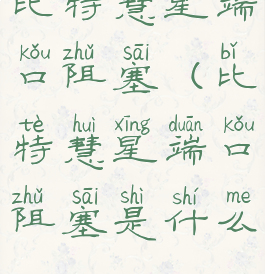 比特慧星端
kǒu zhǔ sāi bǐ
口阻塞（比
tè huì xīng duān kǒu
特慧星端口
zhǔ sāi shì shí me
阻塞是什么